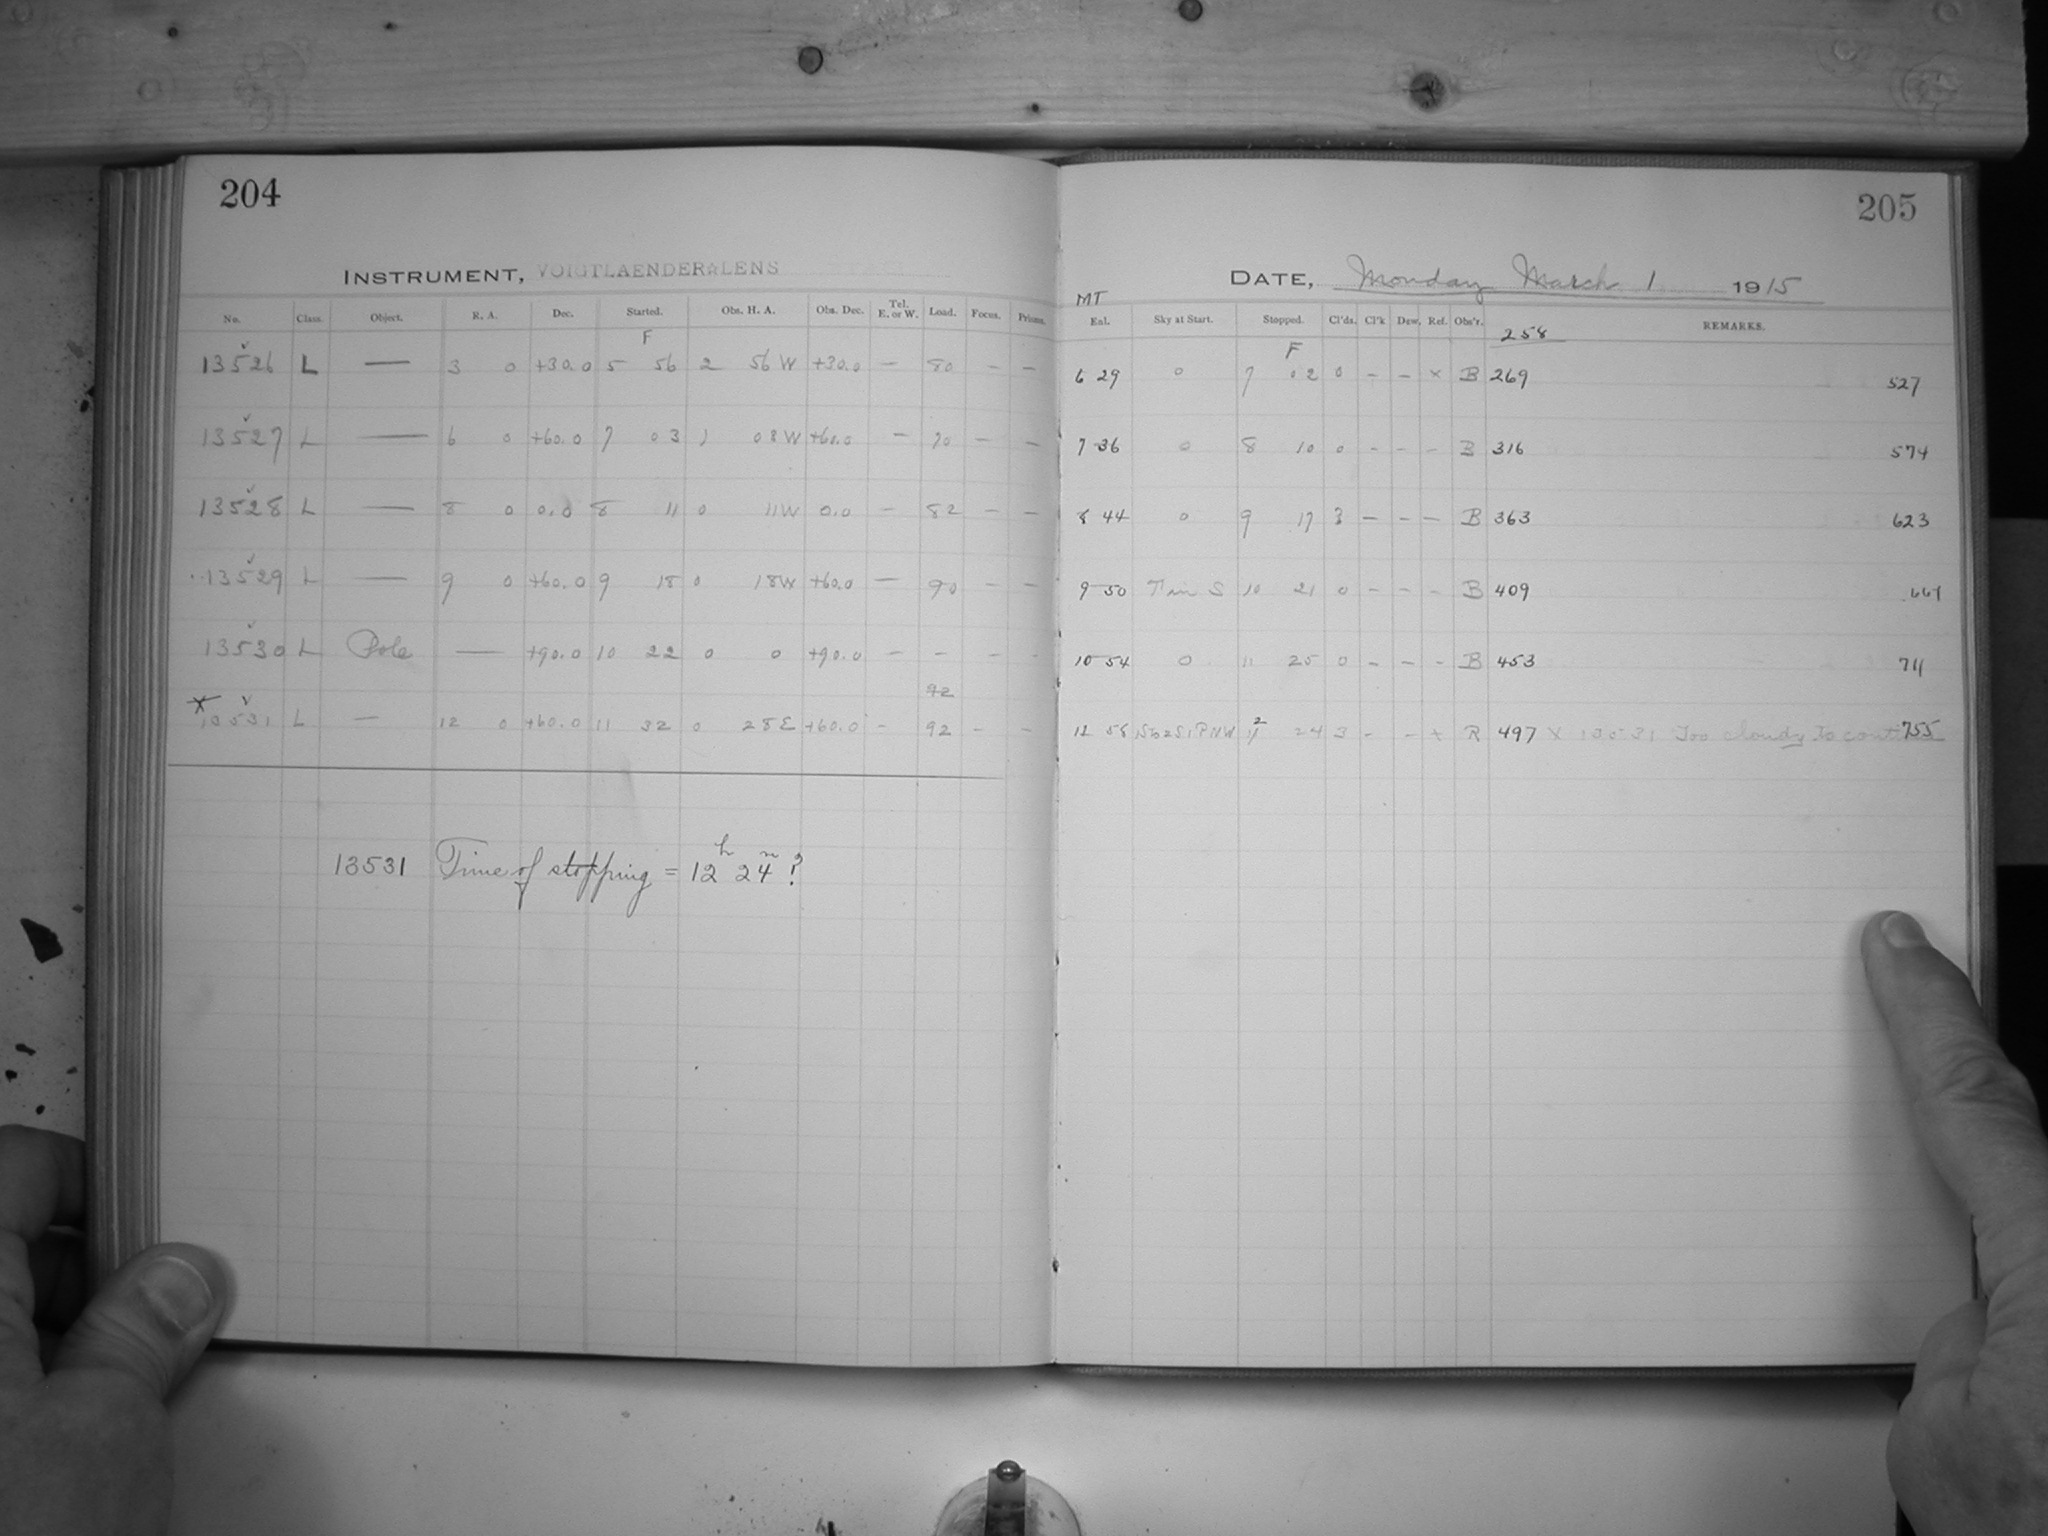 204
INSTRUMENT, VOIGTLAENDER LENS
No. Class. Object. R. A. Dec. Started. Obs. H. A. Obs. Dec. Tel. E. or W. Load. Focus. Prisms.
F
13526 L — 3 0 +30.0 5 56 2 56 W +30.0 — 80 – –
13527 L — 6 0 +60.0 7 03 1 03 W +60.0 — 90 – –
13528 L — 8 0 0.0 8 11 0 11 W 0.0 – 82 – –
13529 L — 9 0 +60.0 9 18 0 18 W +60.0 — 90 – –
13530 L Pole — +90.0 10 22 0 0 +90.0 – – –
92
X 13531 L — 12 0 +60.0 11 32 0 28 E +60.0 – 92 – –
13531 Time of stopping = 12h 24m ?
205
DATE, Monday March 1 1915
MT
Eal. Sky at Start. Stopped. Cl'ds. Cl'k Dew. Ref. Obs'r. REMARKS.
258
F
6 29 0 7 02 0 – – x B 269 527
7 36 0 8 10 0 – – – B 316 574
8 44 0 9 17 3 – – – B 363 623
9 50 S 10 21 0 – – – B 409 667
10 54 0 11 25 0 – – – B 453 711
12 58 12 24 3 – – + R 497 X 13531 Too cloudy to 755